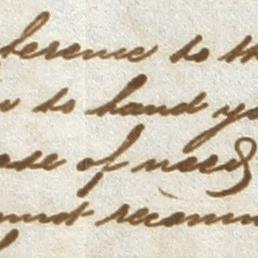 ference to th
to hand yo
ase of need
nnot recomm